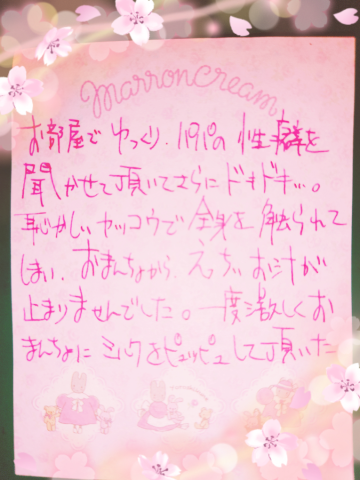 marroncream
お部屋でゆっくり、の性癖を
聞かせて頂いてさらにドキドキ…。
恥かしいカッコウで全身を触られて
しまい、おまんちょから、えちぃお汁が
止まりませんでした。一度激しくお
まんちょにミルクをピュッピュして頂いた